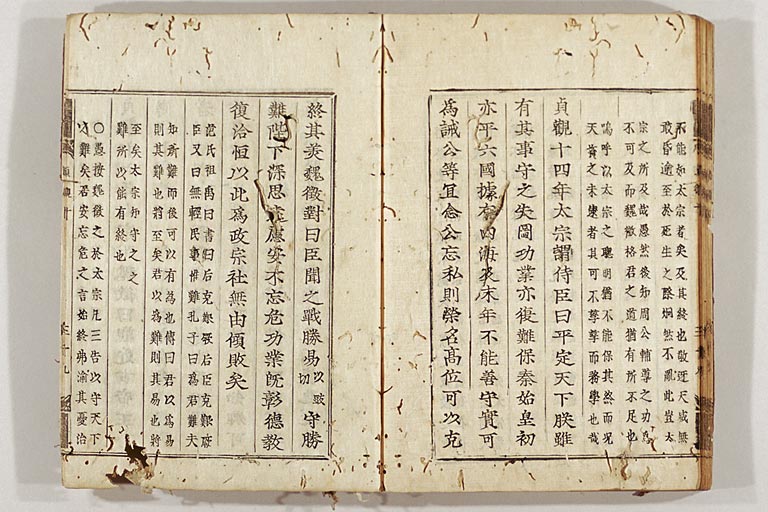 不能如太宗者矣及其終也敬近天威無
敢昏逾至於死生之際烱然不亂此豈太
宗之所及哉愚然後知周公輔導之功爲
不可及而魏徵格君之道猶有所不足也
嗚呼以太宗之聰明猶不能保其終而况
天資之未逮者其可不孳孳而務學也哉
貞觀十四年太宗謂侍臣曰平定天下朕雖
有其事守之失圖功業亦復難保秦始皇初
亦平六國據有四海及末年不能善守實可
爲誡公等宜念公忘私則榮名高位可以克
終其美魏徵對曰臣聞之戰勝易以豉切守勝
難陛下深思遠慮安不忘危功業旣彰德敎
復洽恒以此爲政宗社無由傾敗矣
范氏祖禹曰書曰后克艱厥后臣克艱厥
臣又曰無輕民事惟難孔子曰爲君難夫
知所難而後可以有爲也傳曰君以爲易
則其難也將至矣君以爲難則其易也將
至矣太宗知守之之
難所以能有終也
○愚按魏徵之於太宗凡三告以守天下
以難矣居安忘危之言始終弗渝其憂治